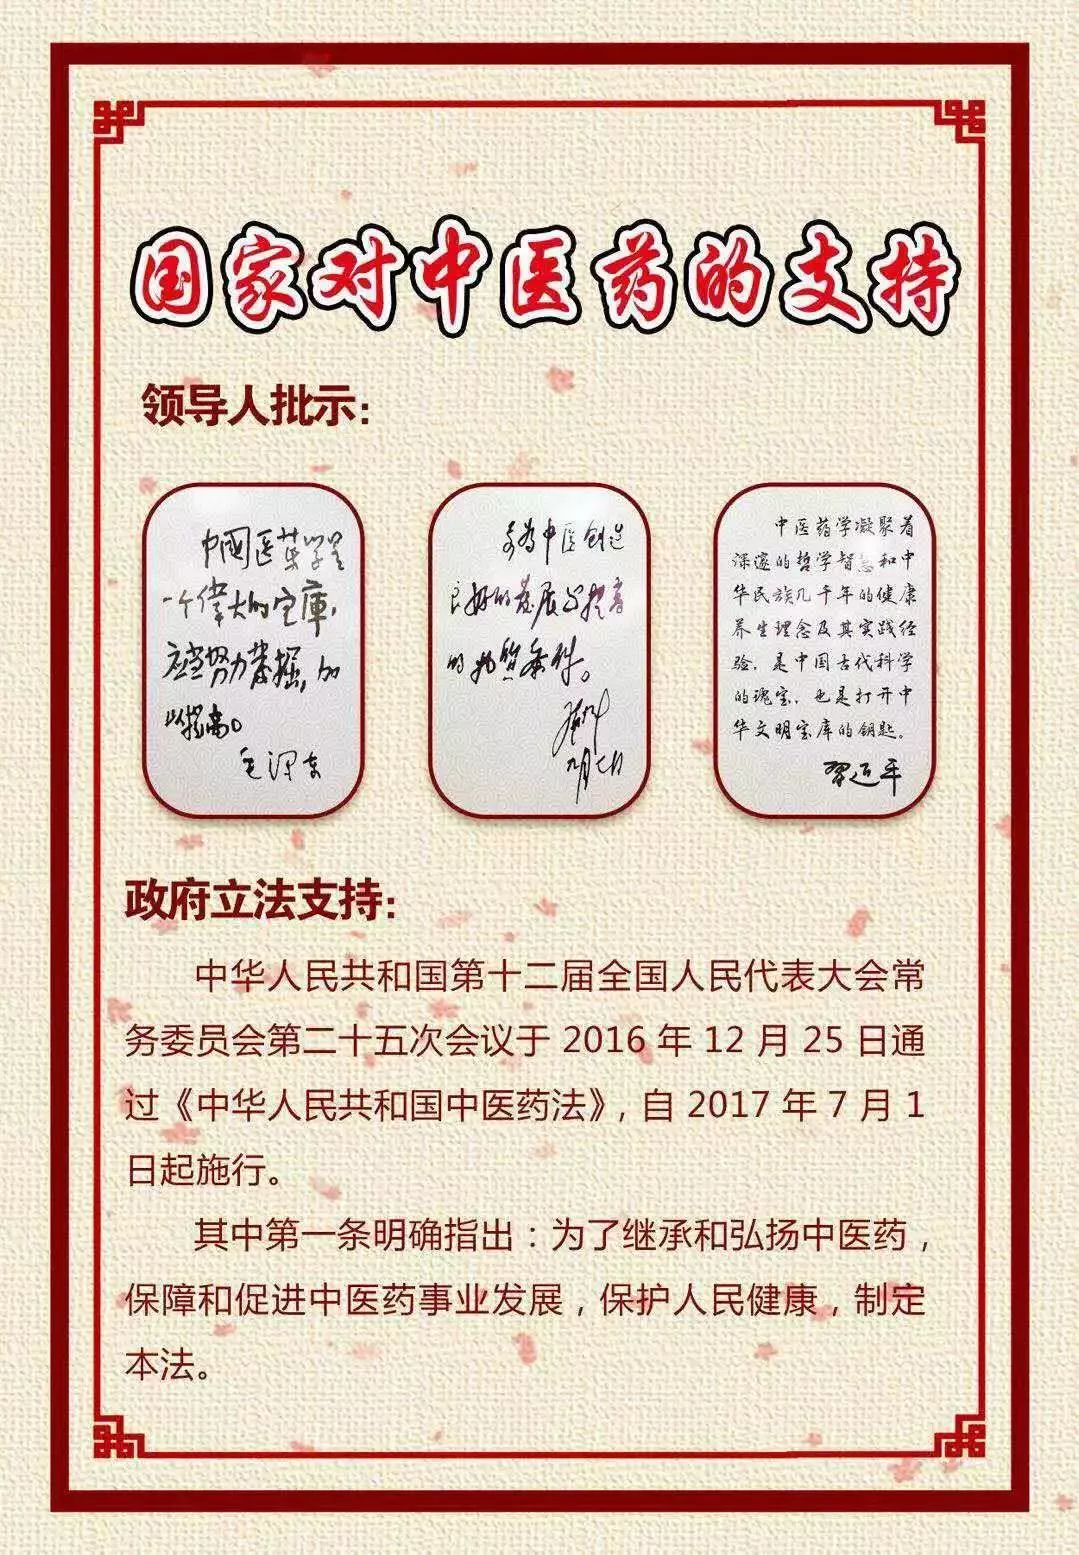 国家对中医药的支持
领导人批示：
中國医药学是
一个偉大的宝庫，
应当努力发掘，加
以提高。
毛泽东
要为中医创造
良好的发展与提高
的物质条件。
九月七日
中医药学凝聚着
深邃的哲学智慧和中
华民族几千年的健康
养生理念及其实践经
验，是中国古代科学
的瑰宝，也是打开中
华文明宝库的钥匙。
习近平
政府立法支持：
中华人民共和国第十二届全国人民代表大会常
务委员会第二十五次会议于 2016 年 12 月 25 日通
过《中华人民共和国中医药法》，自 2017 年 7 月 1
日起施行。
其中第一条明确指出：为了继承和弘扬中医药，
保障和促进中医药事业发展，保护人民健康，制定
本法。